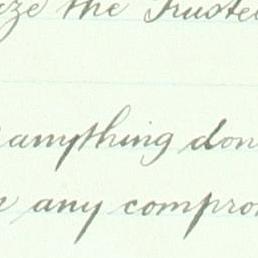 the Truste
anything don
any compro